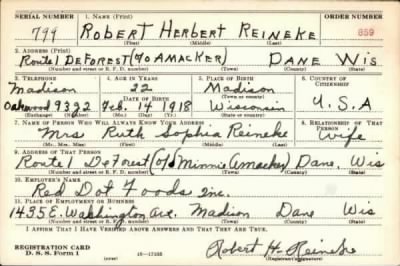 SERIAL NUMBER 1. NAME (Print) ORDER NUMBER
799 ROBERT HERBERT REINEKE 859
(First) (Middle) (Last)
2. ADDRESS (Print)
ROUTE 1 DEFOREST (% AMACKER) DANE WIS
(Number and street or R. F. D. number) (Town) (County) (State)
3. TELEPHONE 4. AGE IN YEARS 5. PLACE OF BIRTH 6. COUNTRY OF CITIZENSHIP
Madison 22 Madison
DATE OF BIRTH
Oakwood 9392 Feb. 14 1918 Wisconsin U.S.A
(Exchange) (Number) (Mo.) (Day) (Yr.) (State or country)
7. NAME OF PERSON WHO WILL ALWAYS KNOW YOUR ADDRESS 8. RELATIONSHIP OF THAT PERSON
Mrs Ruth Sophia Reineke Wife
(Mr., Mrs., Miss) (First) (Middle) (Last)
9. ADDRESS OF THAT PERSON
Route 1 DeForest (% Minnie Amacker) Dane, Wis
(Number and street or R. F. D. number) (Town) (County) (State)
10. EMPLOYER'S NAME
Red Dot Foods Inc.
11. PLACE OF EMPLOYMENT OR BUSINESS
1435 E. Washington Ave. Madison Dane Wis
(Number and street or R. F. D. number) (Town) (County) (State)
I AFFIRM THAT I HAVE VERIFIED ABOVE ANSWERS AND THAT THEY ARE TRUE.
REGISTRATION CARD
D. S. S. Form 1 16—17105 Robert H. Reineke
(Registrant's signature)